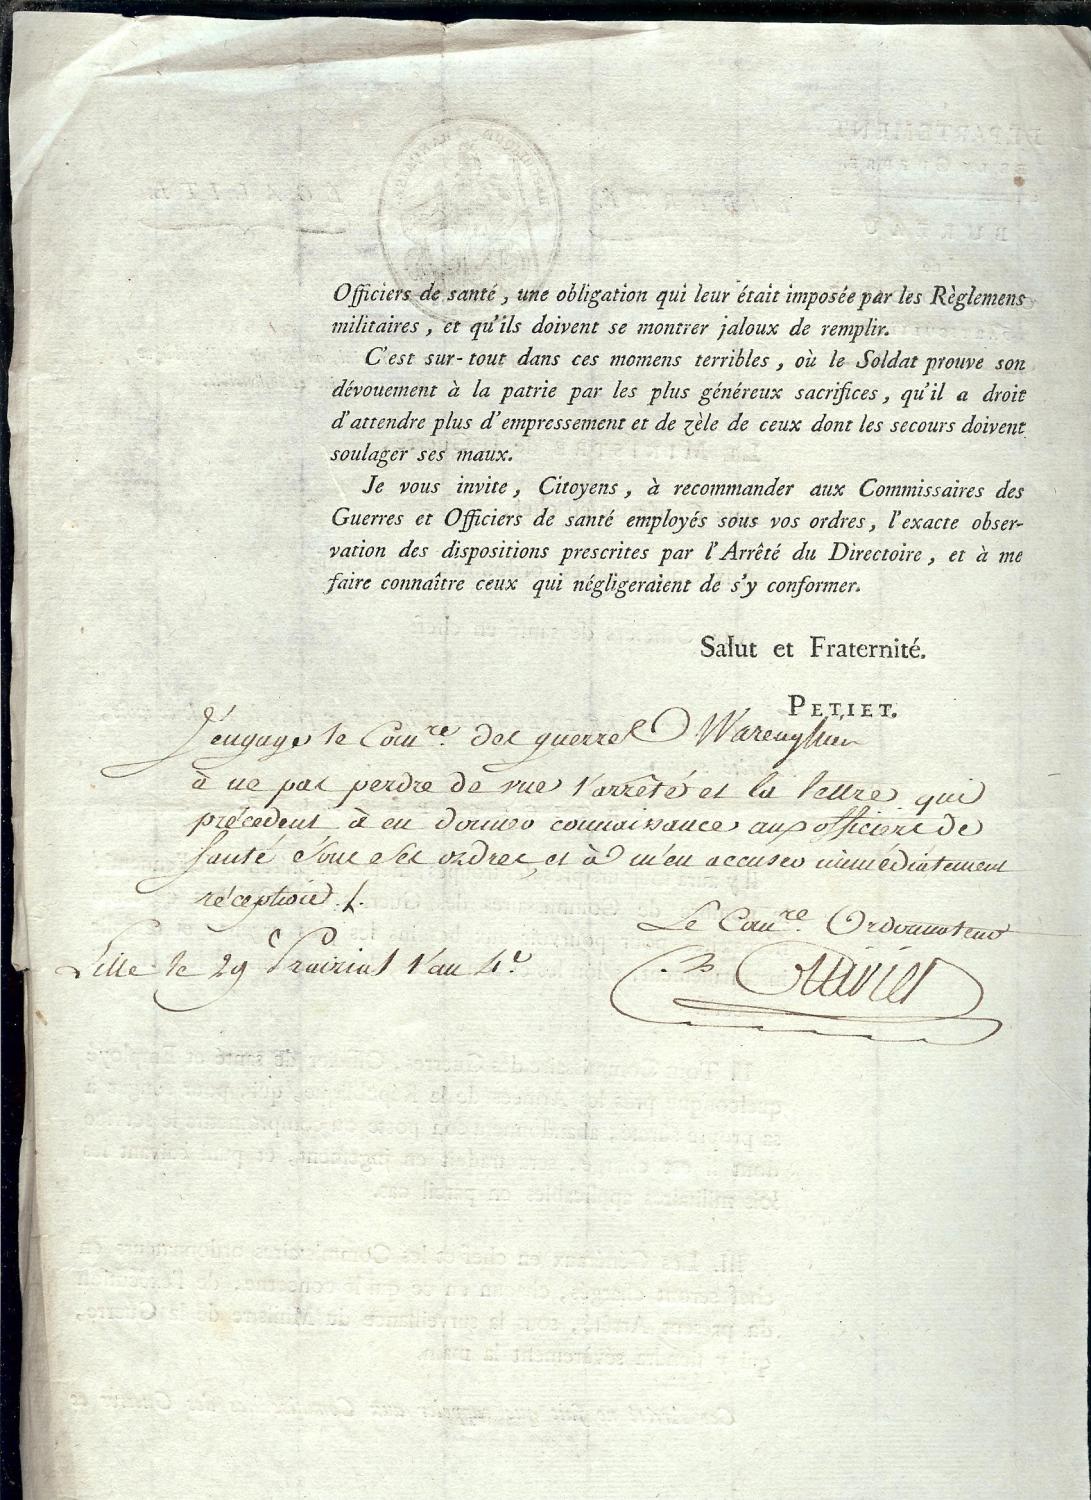 Officiers de santé, une obligation qui leur était imposée par les Règlemens
militaires, et qu'ils doivent se montrer jaloux de remplir.
C'est sur-tout dans ces momens terribles, où le Soldat prouve son
dévouement à la patrie par les plus généreux sacrifices, qu'il a droit
d'attendre plus d'empressement et de zèle de ceux dont les secours doivent
soulager ses maux.
Je vous invite, Citoyens, à recommander aux Commissaires des
Guerres et Officiers de santé employés sous vos ordres, l'exacte obser-
vation des dispositions prescrites par l'Arrêté du Directoire, et à me
faire connaître ceux qui négligeraient de s'y conformer.
Salut et Fraternité.
PETIET.
J'engage le Comre. des guerres Warenghien
à ne pas perdre de vue l'arrêté et la lettre qui
précédent à en donner connaissance aux officiers de
santé sous ses ordres, et à m'en accuser immédiatement
réception ./.
Le Comre. Ordonnateur
Lille le 29 Prairial l'an 4e